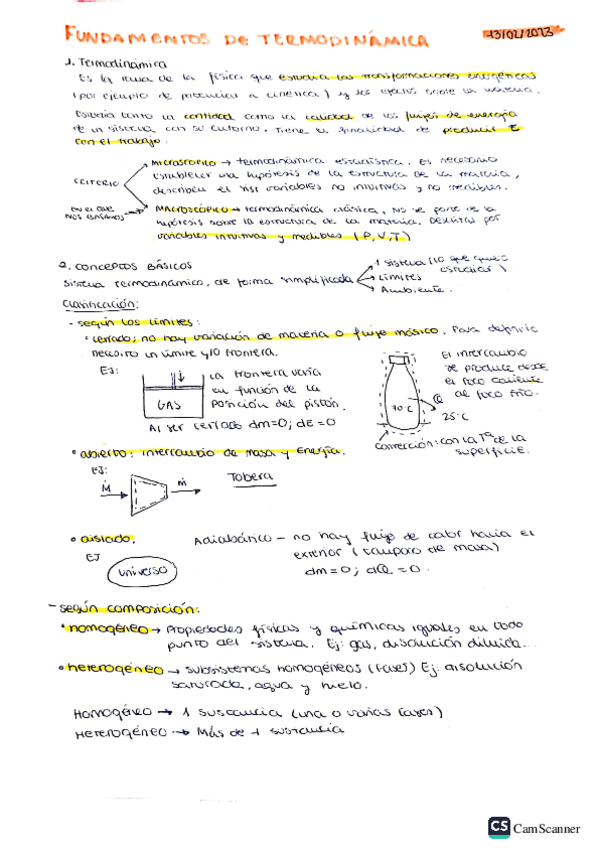 FUNDAMENTOS DE TERMODINÁMICA
13/02/2023
1. Termodinámica
Es la rama de la física que estudia las transformaciones energéticas
(por ejemplo de potencial a cinética) y los efectos sobre la materia.
Estudia tanto la cantidad como la calidad de los flujos de energía
de un sistema con su entorno. Tiene la finalidad de producir E
con el trabajo.
CRITERIO
MICROSCÓPICO → termodinámica estadística. Es necesario
establecer una hipótesis de la estructura de la materia,
describen el sist variables no intuitivas y no medibles.
EN EL QUE
NOS BASAMOS
MACROSCÓPICO → termodinámica clásica, No se parte de la
hipótesis sobre la estructura de la materia. Descritas por
variables intuitivas y medibles (P,V,T)
2. CONCEPTOS BÁSICOS
Sistema termodinámico, de forma simplificada
1 sistema (lo que quieres
estudiar)
Límites
Ambiente.
Clasificación:
- según los límites:
• cerrado; no hay variación de materia o flujo másico. Para definirlo
necesito un límite y/o frontera.
EJ:
GAS
La frontera varía
en función de la
posición del pistón.
Al ser cerrado dm=0; dE=0
70°C
Q
25°C
El intercambio
se produce desde
el foco caliente
al foco frío.
Convección: con la Tª de la
superficie.
• abierto: intercambio de masa y Energía.
EJ:
ṁ
ṁ
Tobera
• aislado.
EJ
universo
Adiabático - no hay flujo de calor hacia el
exterior (tampoco de masa)
dm=0; dQ=0.
- según composición:
• homogéneo → Propiedades físicas y químicas iguales en todo
punto del sistema. Ej: gas, disolución diluida...
• heterogéneo → subsistemas homogéneos (fases) Ej: disolución
saturada, agua y hielo.
Homogéneo → 1 sustancia (una o varias fases)
Heterogéneo → Más de 1 sustancia
CS CamScanner